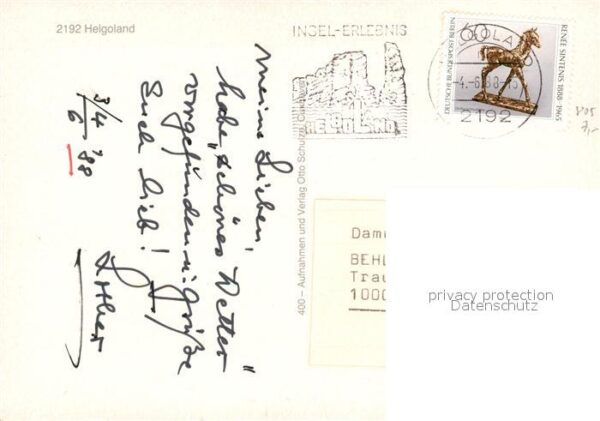 2192 Helgoland
3/4
6. '88
Meine Lieben,
habe "schönes Wetter"
vorgefunden u. grüße
Euch lieb!
Lothar
400 – Aufnahmen und Verlag Otto Schulze, Cuxhaven
INSEL-ERLEBNIS
HELGOLAND
-4.-6.88-15
2192
60
DEUTSCHE BUNDESPOST BERLIN
RENÉE SINTENIS 1888–1965
805
7,-
Dam
BEHL
Trau
1000
privacy protection
Datenschutz